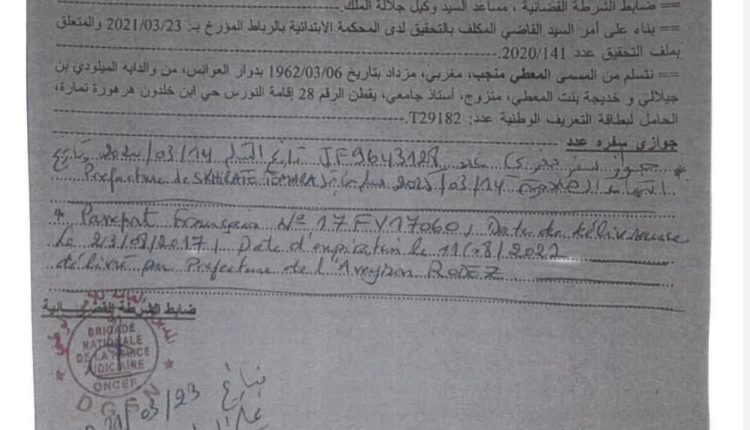 == ضابط الشرطة القضائية، مساعد السيد وكيل جلالة الملك.
== بناء على أمر السيد القاضي المكلف بالتحقيق لدى المحكمة الابتدائية بالرباط المؤرخ بـ: 2021/03/23 والمتعلق
بملف التحقيق عدد 2020/141.
== نتسلم من المسمى المعطي منجب، مغربي، مزداد بتاريخ 1962/03/06 بدوار العوانس، من والديه الميلودي بن
جيلالي و خديجة بنت المعطي، متزوج، أستاذ جامعي، يقطن الرقم 28 إقامة النورس حي ابن خلدون هرهورة تمارة،
الحامل لبطاقة التعريف الوطنية عدد: T29182.
جوازي سفره عدد
* جواز سفر مغربي عدد JF9643128 تاريخ
2025/03/14 Préfecture de SKHIRATE TEMARA
* Passeport Français N° 17FV17060, Date de délivrance
le 23/08/2017, Date d'expiration le
délivré par Préfecture de l'Aveyron RODEZ
ضابط الشرطة القضائية
BRIGADE
NATIONALE
DE LA POLICE
JUDICIAIRE
DGSN
بتاريخ
21/03/23